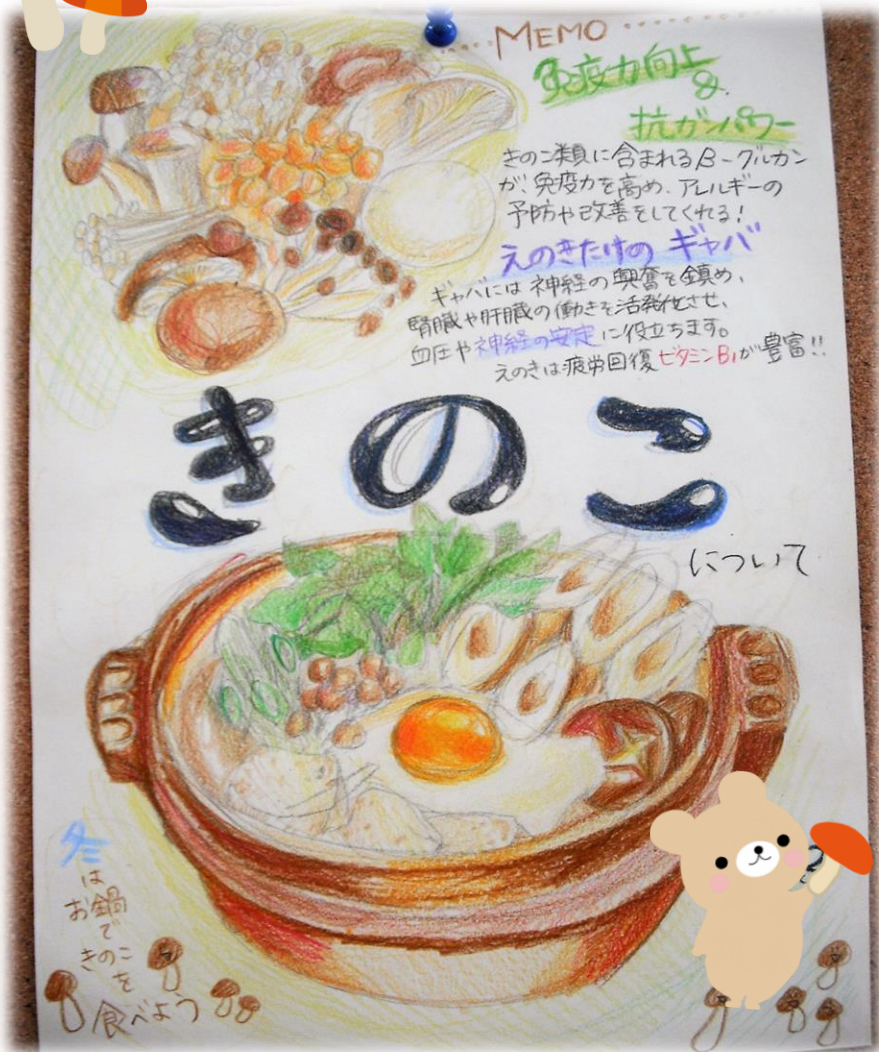 MEMO
免疫力向上
&
抗ガンパワー
きのこ類に含まれるβ-グルカン
が、免疫力を高め、アレルギーの
予防や改善をしてくれる!
えのきたけの ギャバ
ギャバには神経の興奮を鎮め、
腎臓や肝臓の働きを活発化させ、
血圧や神経の安定に役立ちます。
えのきは疲労回復ビタミンB₁が豊富!!
きのこ
について
冬
は
お鍋で
きのこ
を
食べよう